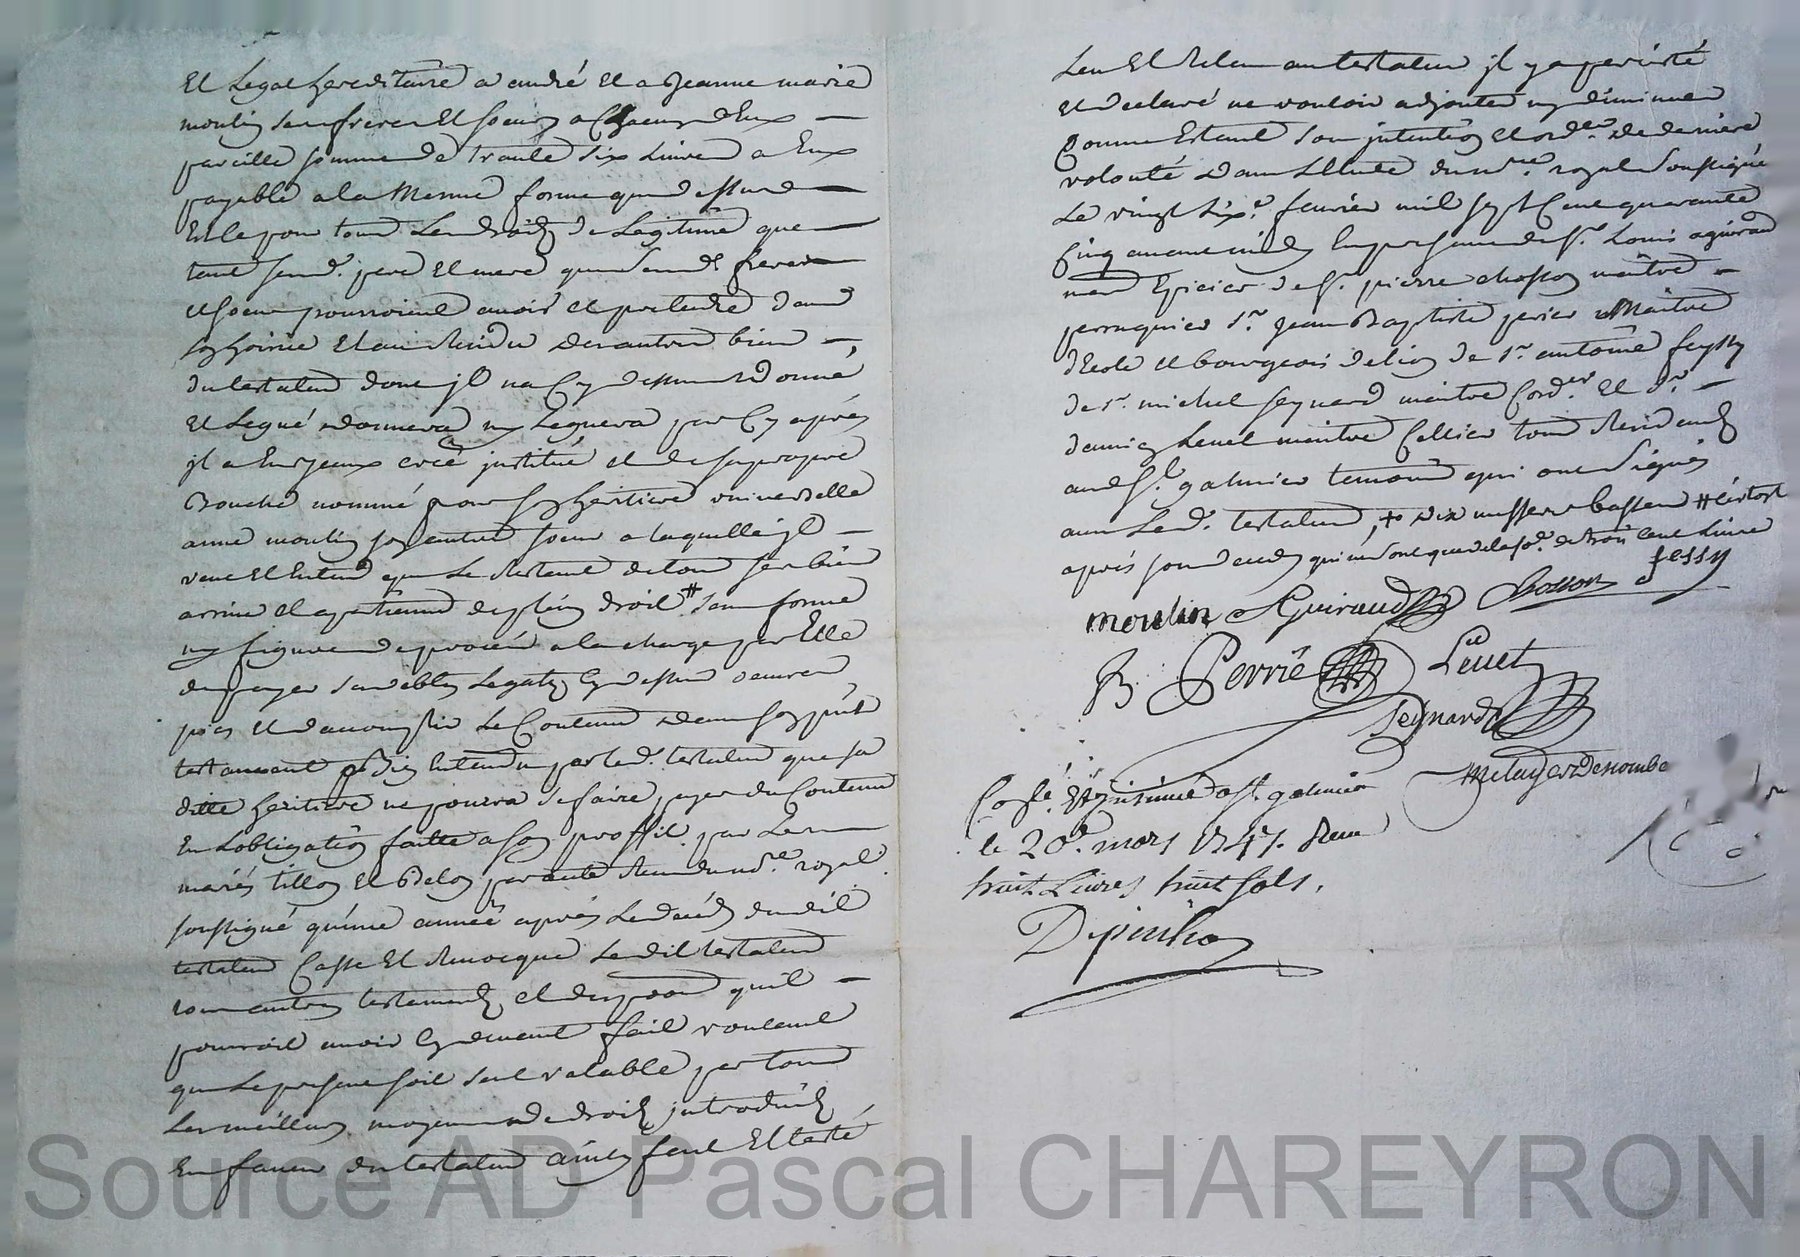 Et legat hereditaire a andré et a Jeanne marie
moulin ses frere et soeur a chacun d'Eux
pareille somme de trante six livres a Eux
payable a la meme forme que dessus
Et ce pour tous les droits de legitime que
tant sesd. pere et mere que sesd. freres
et soeur pourroient avoir et pretendre dans
son hoirie Et au residu des autres biens
du testateur dont il na cy dessus donné
Et legué donnera ny leguera par cy après
il a heritiere créé institué et de sa propre
Bouche nommé pour son heritiere universelle
anne moulin son autre soeur a laquelle il
veut Et Entend que le restant de tous ses biens
arrive et apartienne de plein droit # sans forme
ny figure de procès a la charge par Elle
de payer ses debtes legats cy dessus oeuvres
pies et d'acomplir le Contenu dans son pnt
testament Bien Entendu par led. testateur que sa
ditte heritiere ne pourra se faire payer du Contenu
En Lobligation faitte a son proffit par les
mariés tillon et Belon par acte receu du no.re royal
soussigné qu'une année après le decés dudit
testateur Casse Et revocque ledit testateur
tous autres testements et disp.ons quil
pourroit avoir cy devant fait voulant
que le present soit seul valable par tous
Les meilleurs moyens de droits introduits
En faveur du testateur ainsy fait Et testé
Leu Et Releu au testateur il y a percisté
et declaré ne vouloir adjouter ny diminuer
Comme Estant son intention et ord.re de derniere
volonté dans l'Etude du no.re royal soussigné
Le vingt six.e fevrier mil sept Cent quarante
Cinq avant midy En presence de s.r Louis aguiraud
md Epicier de s.r pierre chosson maitre
perruquier s.r Jean Baptiste perier Maitre
d'Ecole et bourgeois de lion de s.r antoine fessy
de s.r michel seynard maitre Cord.er Et s.r
damien Levet maitre Cellier tous residants
aud S.t galmier temoins qui ont signés
avec led. testateur, + dix # et tost
après son deceds qui ne sont que de la so.e de trois cent livres
moulin aGuiraud Chosson fessy
JB. Perrié Levet
Seynard
Metayer Descombe
Co.lé Et insinué a S.t galmier
le 20.e mars 1747. Receu
huit Livres huit sols.
Depinhac
Source AD Pascal CHAREYRON